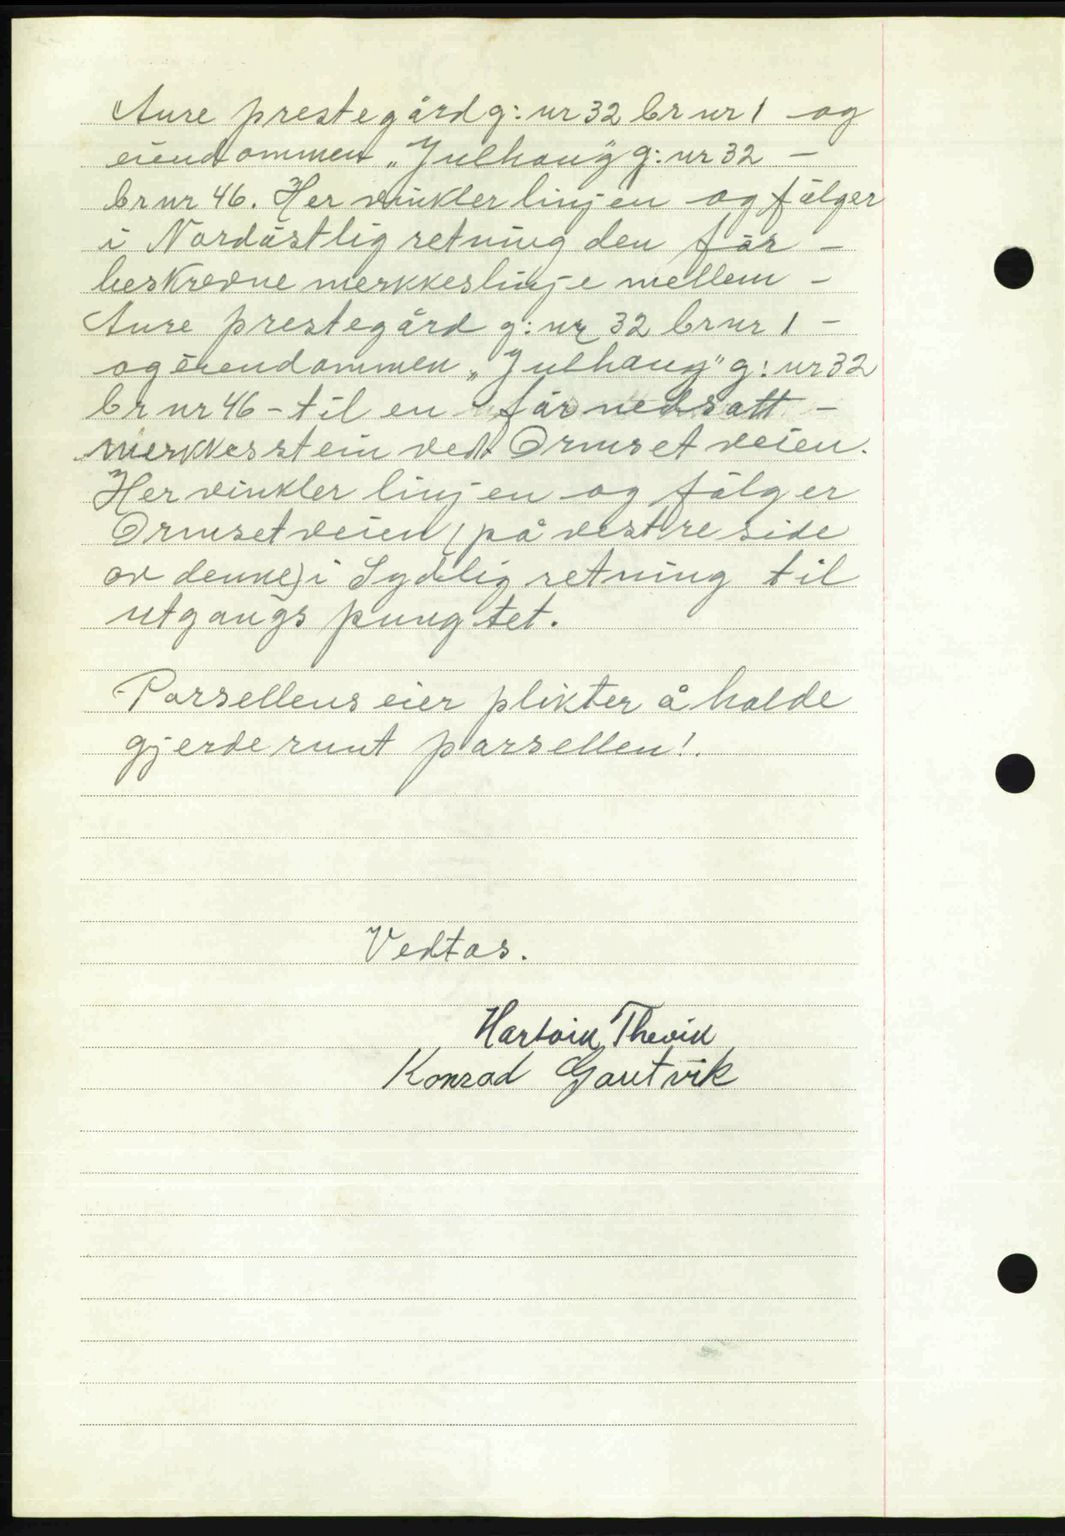 Aure prestegård g: nr 32 br nr 1 og
eiendommen „Julhaug" g: nr 32 -
br nr 46. Her vinkler linjen og fölger
i Nordöstlig retning den för -
beskrevne merkkeslinje mellem -
Aure prestegård g: nr 32 br nr 1 -
og eiendommen „Julhaug" g: nr 32
br nr 46 - til en för nedsatt -
merkkesstein ved Ormset veien.
Her vinkler linjen og fölger
Ormsetveien (på vestre side
av denne) i Sydlig retning til
utgangs pungtet.
Parsellens eier plikter å holde
gjerde runt parsellen!.
Vedtas.
Hartvik Thevik
Konrad Gautvik